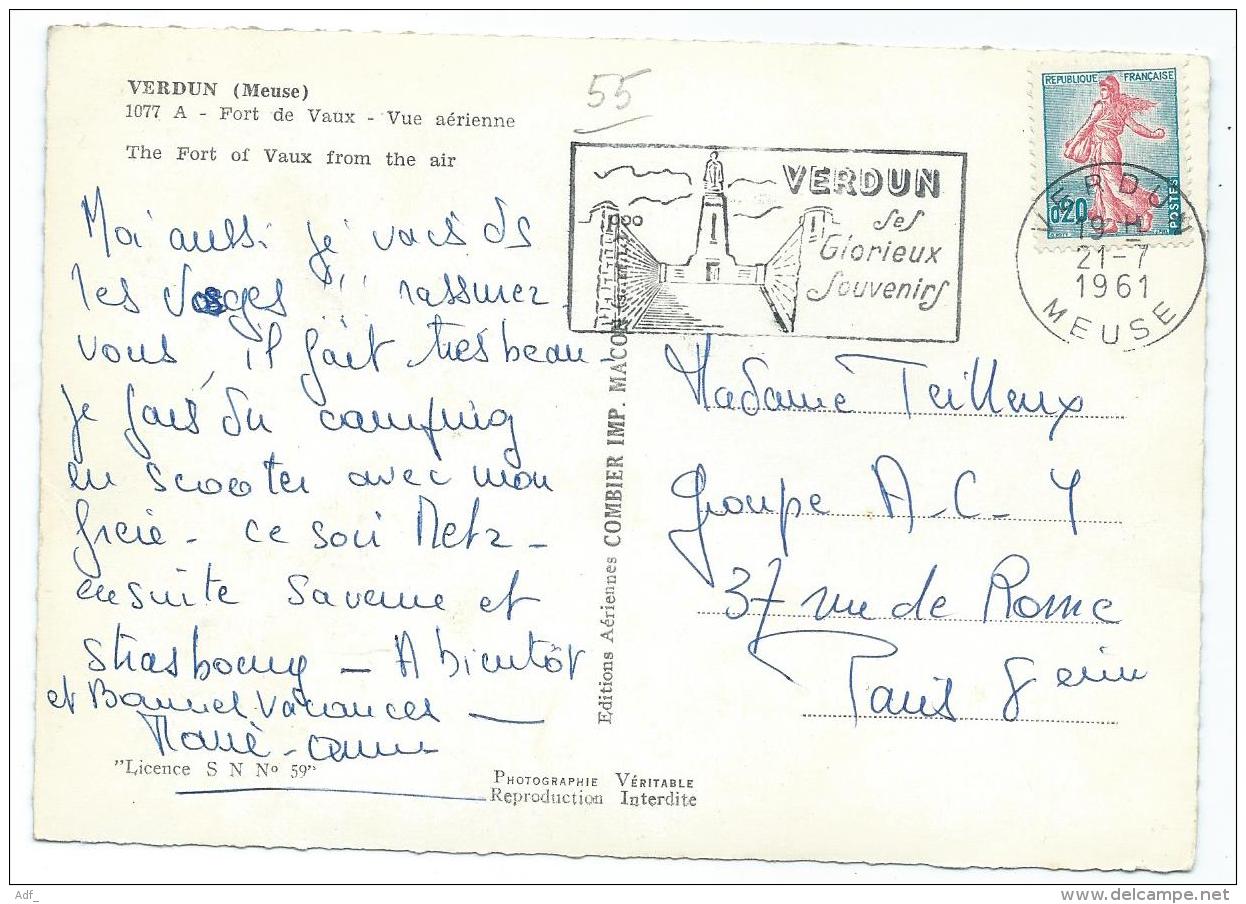 VERDUN (Meuse)
1077 A - Fort de Vaux - Vue aérienne
The Fort of Vaux from the air
55
VERDUN
ses
Glorieux
Souvenirs
REPUBLIQUE FRANÇAISE
0,20
POSTES
VERDUN
19-H
21-7
1961
MEUSE
Moi aussi je vais ds
les Vosges !!! rassurez-
vous, il fait très beau-
je fais du camping
en scooter avec mon
frère - ce soir Metz -
ensuite Saverne et
Strasbourg - A bientôt
et Bonnes Vacances —
Marie-Anne
"Licence S N Nº 59"
Editions Aériennes COMBIER IMP. MACON
Madame Teilleux
groupe A-C-4
37 rue de Rome
Paris 8 eme
PHOTOGRAPHIE VÉRITABLE
Reproduction Interdite
Adf_
delcampe.net